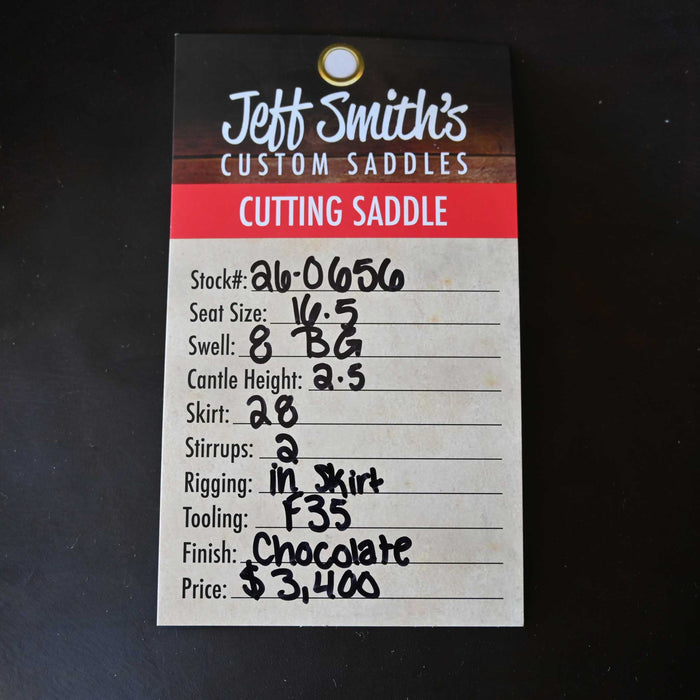 Jeff Smith's
CUSTOM SADDLES
CUTTING SADDLE
Stock#: 26-0656
Seat Size: 16.5
Swell: 8 BG
Cantle Height: 2.5
Skirt: 28
Stirrups: 2
Rigging: in Skirt
Tooling: F35
Finish: Chocolate
Price: $3,400